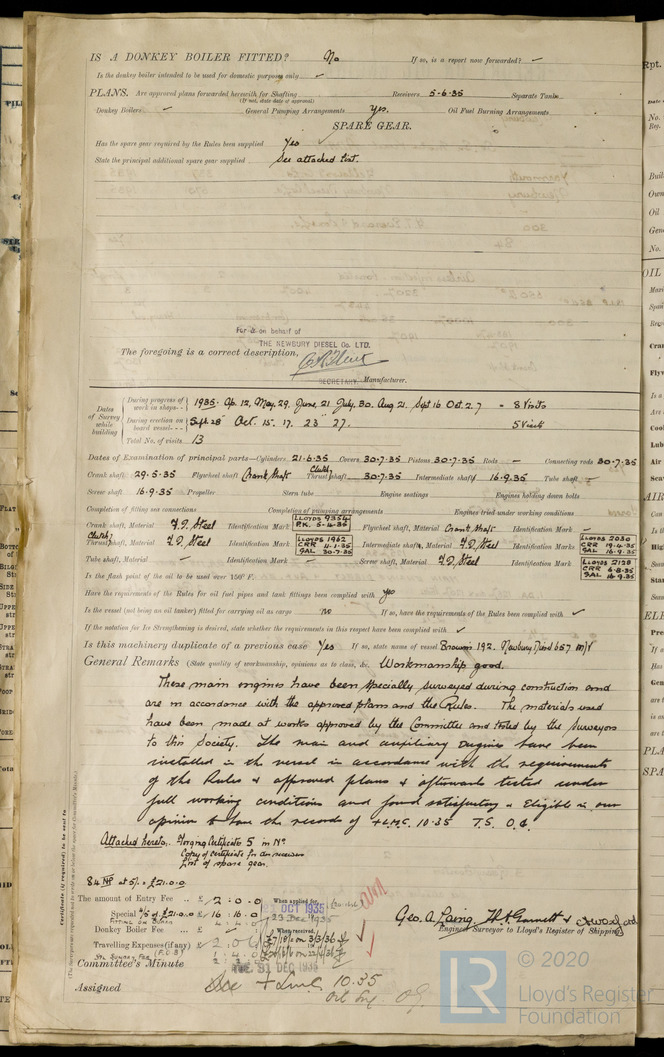 IS A DONKEY BOILER FITTED? No If so, is a report now forwarded? —
Is the donkey boiler intended to be used for domestic purposes only —
PLANS. Are approved plans forwarded herewith for Shafting Receivers 5-6-35 Separate Tanks
(If not, state date of approval)
Donkey Boilers — General Pumping Arrangements Yes. Oil Fuel Burning Arrangements
SPARE GEAR.
Has the spare gear required by the Rules been supplied Yes
State the principal additional spare gear supplied See attached list.
For & on behalf of
THE NEWBURY DIESEL Co. LTD.
The foregoing is a correct description,
SECRETARY Manufacturer.
Dates of Survey while building
During progress of work in shops-- 1935. Ap. 12, May. 29, June. 21, July. 30. Aug. 21. Sept 16 Oct. 2. 7 = 8 Visits
During erection on board vessel--- Sept. 28 Oct. 15. 17. 23 27. 5 Visits
Total No. of visits 13
Dates of Examination of principal parts—Cylinders 21.6.35 Covers 30.7.35 Pistons 30.7.35 Rods — Connecting rods 30.7.35
Crank shaft 29.5.35 Flywheel shaft Crank shaft Clutch Thrust shaft 30.7.35 Intermediate shaft 16.9.35 Tube shaft —
Screw shaft 16.9.35 Propeller Stern tube Engine seatings Engines holding down bolts
Completion of fitting sea connections Completion of pumping arrangements Engines tried under working conditions
Crank shaft, Material F.D. Steel Identification Mark LLOYDS 9354 P.K. 5-4-35 Flywheel shaft, Material Crank shaft Identification Mark —
Clutch Thrust shaft, Material F.D. Steel Identification Mark LLOYDS 1962 CRR 11-1-35 GAL 30-7-35 Intermediate shafts, Material F.D. Steel Identification Marks LLOYDS 2030 CRR 19-4-35 GAL 16-9-35
Tube shaft, Material — Identification Mark — Screw shaft, Material F.D. Steel Identification Mark LLOYDS 2128 CRR 6-8-35 GAL 16.9.35
Is the flash point of the oil to be used over 150° F.
Have the requirements of the Rules for oil fuel pipes and tank fittings been complied with yes
Is the vessel (not being an oil tanker) fitted for carrying oil as cargo no If so, have the requirements of the Rules been complied with
If the notation for Ice Strengthening is desired, state whether the requirements in this respect have been complied with
Is this machinery duplicate of a previous case Yes If so, state name of vessel 192. Newbury Diesel 657 M/V
General Remarks (State quality of workmanship, opinions as to class, &c. Workmanship good.
These main engines have been specially surveyed during construction and
are in accordance with the approved plans and the Rules. The materials used
have been made at works approved by the Committee and tested by the Surveyors
to this Society. The main and auxiliary Engines have been
installed in the vessel in accordance with the requirements
of the Rules & approved plans & afterwards tested under
full working conditions and found satisfactory & Eligible in our
opinion to have the records of +LMC. 10.35 T.S. O.G.
Attached hereto. Forging Certificates 5 in No.
Copy of certificate for air receivers
List of spare gear.
84 NP at 5/- = £21.0.0
The amount of Entry Fee .. £ 2 : 0 . 0 When applied for,
Special 4/5 of £21.0.0 £ 16 : 16 . 0 OCT 1935
23 Dec 1935
Donkey Boiler Fee ... £ — When received,
Travelling Expenses (if any) £
Geo. A. Laing, H.A. Garnett & Crawford
Engineer Surveyor to Lloyd's Register of Shipping.
Committee's Minute TUE. 31 DEC 1935
Assigned See + LMC 10.35
Oil Eng. OG
Certificate (if required) to be sent to
© 2020
LR
Lloyd's Register
Foundation